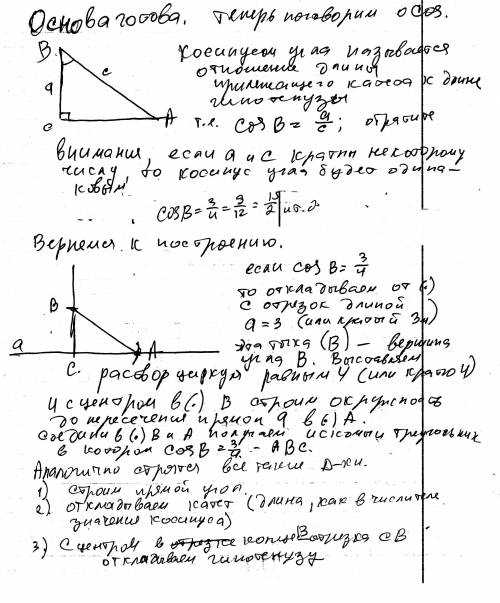 Основа готова. Теперь поговорим о cos.
B
c
a
c
A
Косинусом угла называется
отношение длины
прилежащего катета к длине
гипотенузы
т.е. cos B = a/c; обратите
внимания, если a и c кратны некоторому
числу, то косинус угла будет одина-
ковым
cos B = 3/4 = 9/12 = 15/2 и т.д
Вернемся к построению.
если cos B = 3/4
то откладываем от (.)
C отрезок длиной
a = 3 (или кратый 3м)
B
a
C.
A
эта тычка (B) – вершина
угла B. Выставляем
раствор циркуля равным 4 (или кратно 4)
и с центром в (.) B строим окружность
до пересечения с прямой a в (.) A.
Соединив (.) B и A получаем искомый треугольник
в котором cos B = 3/4 - ABC.
Аналогично строятся все такие Δ-ки.
1) строим прямой угол.
2) откладываем катет (длина, как в числителе
значения косинуса)
3) С центром в отрезке конце B отрезка CB
откладываем гипотенузу